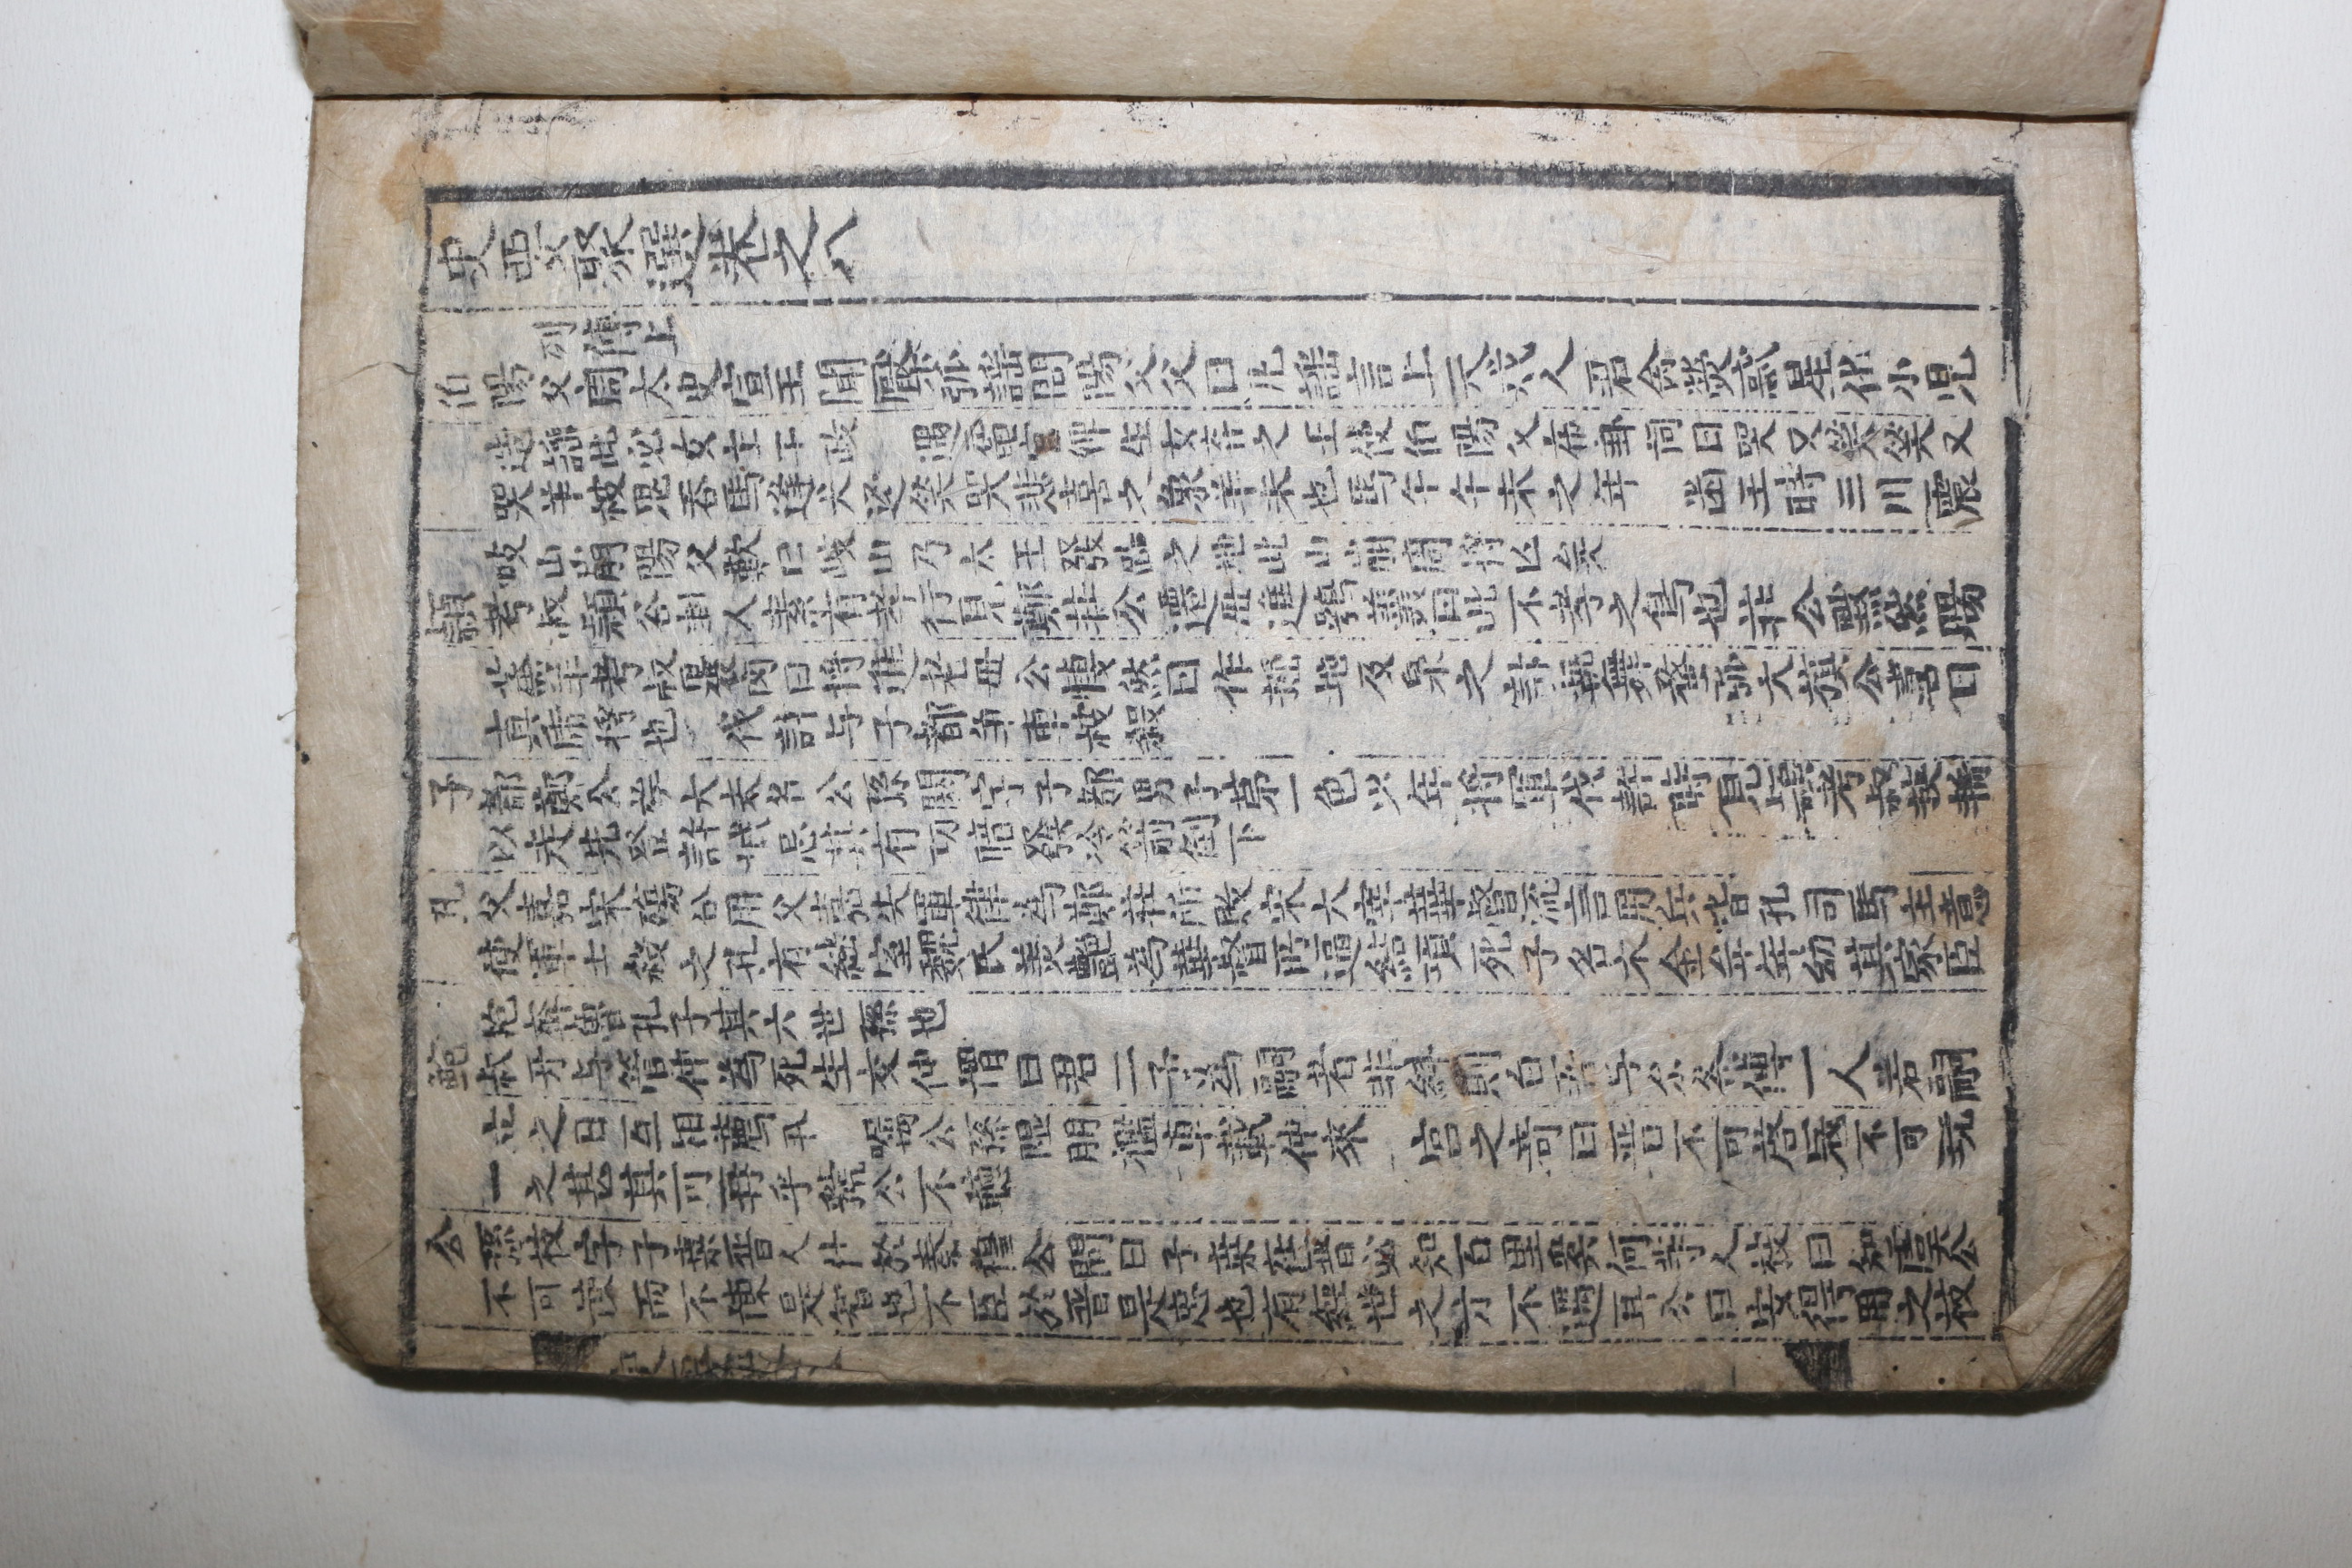 史要聚選卷之八
列傳上
伯陽父周太史宣王聞檿弧謠問陽父父曰此謠言上天戒人君令熒惑星化小児
造謠此必女主干政 遇宮婢生女弃之王使伯陽父布卦詞曰哭又笑笑又
哭羊被鬼呑馬逢犬逐笑哭悲喜之象羊未也馬午午未之年 幽王時三川震
岐山崩陽父歎曰岐山乃太王發跡之地此山崩周將亡矣
潁考叔潁谷封人素有孝行見鄭莊公遷母進鴞羹曰此不孝之鳥也莊公黙然賜
蒸羊考叔裹肉曰將進老母公悽然曰作掘地及泉之計執舞螯弧大旗公喜曰
真席將也 伐許与子都争車被殺
子都鄭公族大夫名公孫閼字子都男子第一色少年將軍伐許時見潁考叔挾輈
以走先登許城忌其有功暗發冷箭倒下
孔父嘉宋殤公用父嘉失軍律為鄭莊所敗宋六宰華督流言用兵皆孔司馬主意
使軍士殺之孔有継室魏氏美艶為華督所逼結項死子名木金年年幼其家臣
抱奔魯孔子其六世孫也
鮑叔牙与管仲為死生交仲謂曰君二子為嗣者非糾則白吾与尒各傅一人若嗣
立之日互相薦 囑公孫隰朋檻車載仲來 宮之奇曰晋不可啓寇不可玩
一之甚其可再乎虢公不聽
公孫枝字子桑晋人仕於秦穆公問曰子桑在晋必知百里奚何等人枝曰知虞公
不可諫而不諫是智也不臣於晋是忠也有經世之才不遇耳公曰安得用之枝